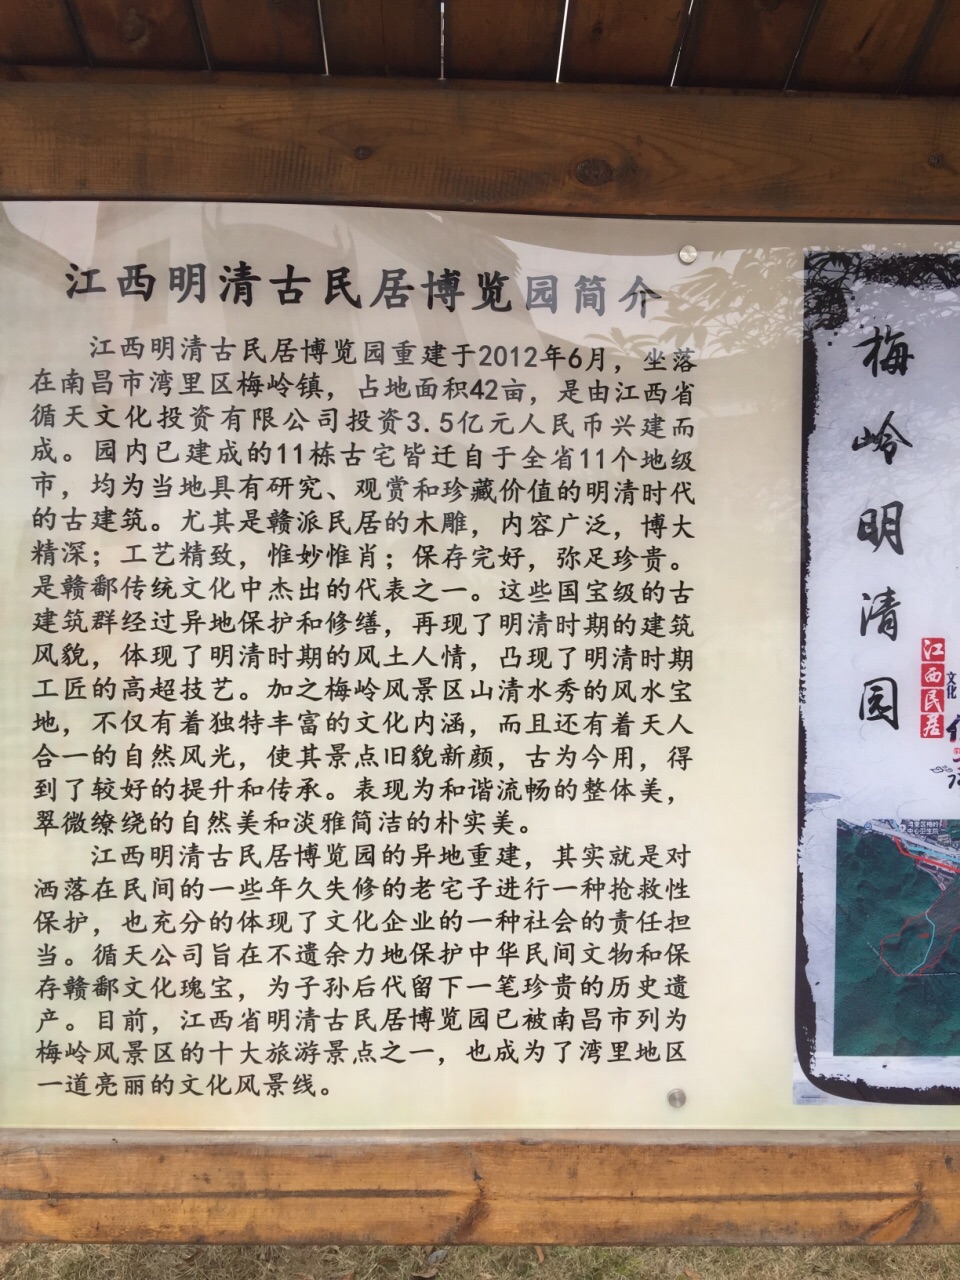 江西明清古民居博览园简介
江西明清古民居博览园重建于2012年6月，坐落
在南昌市湾里区梅岭镇，占地面积42亩，是由江西省
循天文化投资有限公司投资3.5亿元人民币兴建而
成。园内已建成的11栋古宅皆迁自于全省11个地级
市，均为当地具有研究、观赏和珍藏价值的明清时代
的古建筑。尤其是赣派民居的木雕，内容广泛，博大
精深；工艺精致，惟妙惟肖；保存完好，弥足珍贵。
是赣鄱传统文化中杰出的代表之一。这些国宝级的古
建筑群经过异地保护和修缮，再现了明清时期的建筑
风貌，体现了明清时期的风土人情，凸现了明清时期
工匠的高超技艺。加之梅岭风景区山清水秀的风水宝
地，不仅有着独特丰富的文化内涵，而且还有着天人
合一的自然风光，使其景点旧貌新颜，古为今用，得
到了较好的提升和传承。表现为和谐流畅的整体美，
翠微缭绕的自然美和淡雅简洁的朴实美。
江西明清古民居博览园的异地重建，其实就是对
洒落在民间的一些年久失修的老宅子进行一种抢救性
保护，也充分的体现了文化企业的一种社会的责任担
当。循天公司旨在不遗余力地保护中华民间文物和保
存赣鄱文化瑰宝，为子孙后代留下一笔珍贵的历史遗
产。目前，江西省明清古民居博览园已被南昌市列为
梅岭风景区的十大旅游景点之一，也成为了湾里地区
一道亮丽的文化风景线。
梅岭明清园
江西民居
文化
湾里区梅岭
中心卫生院